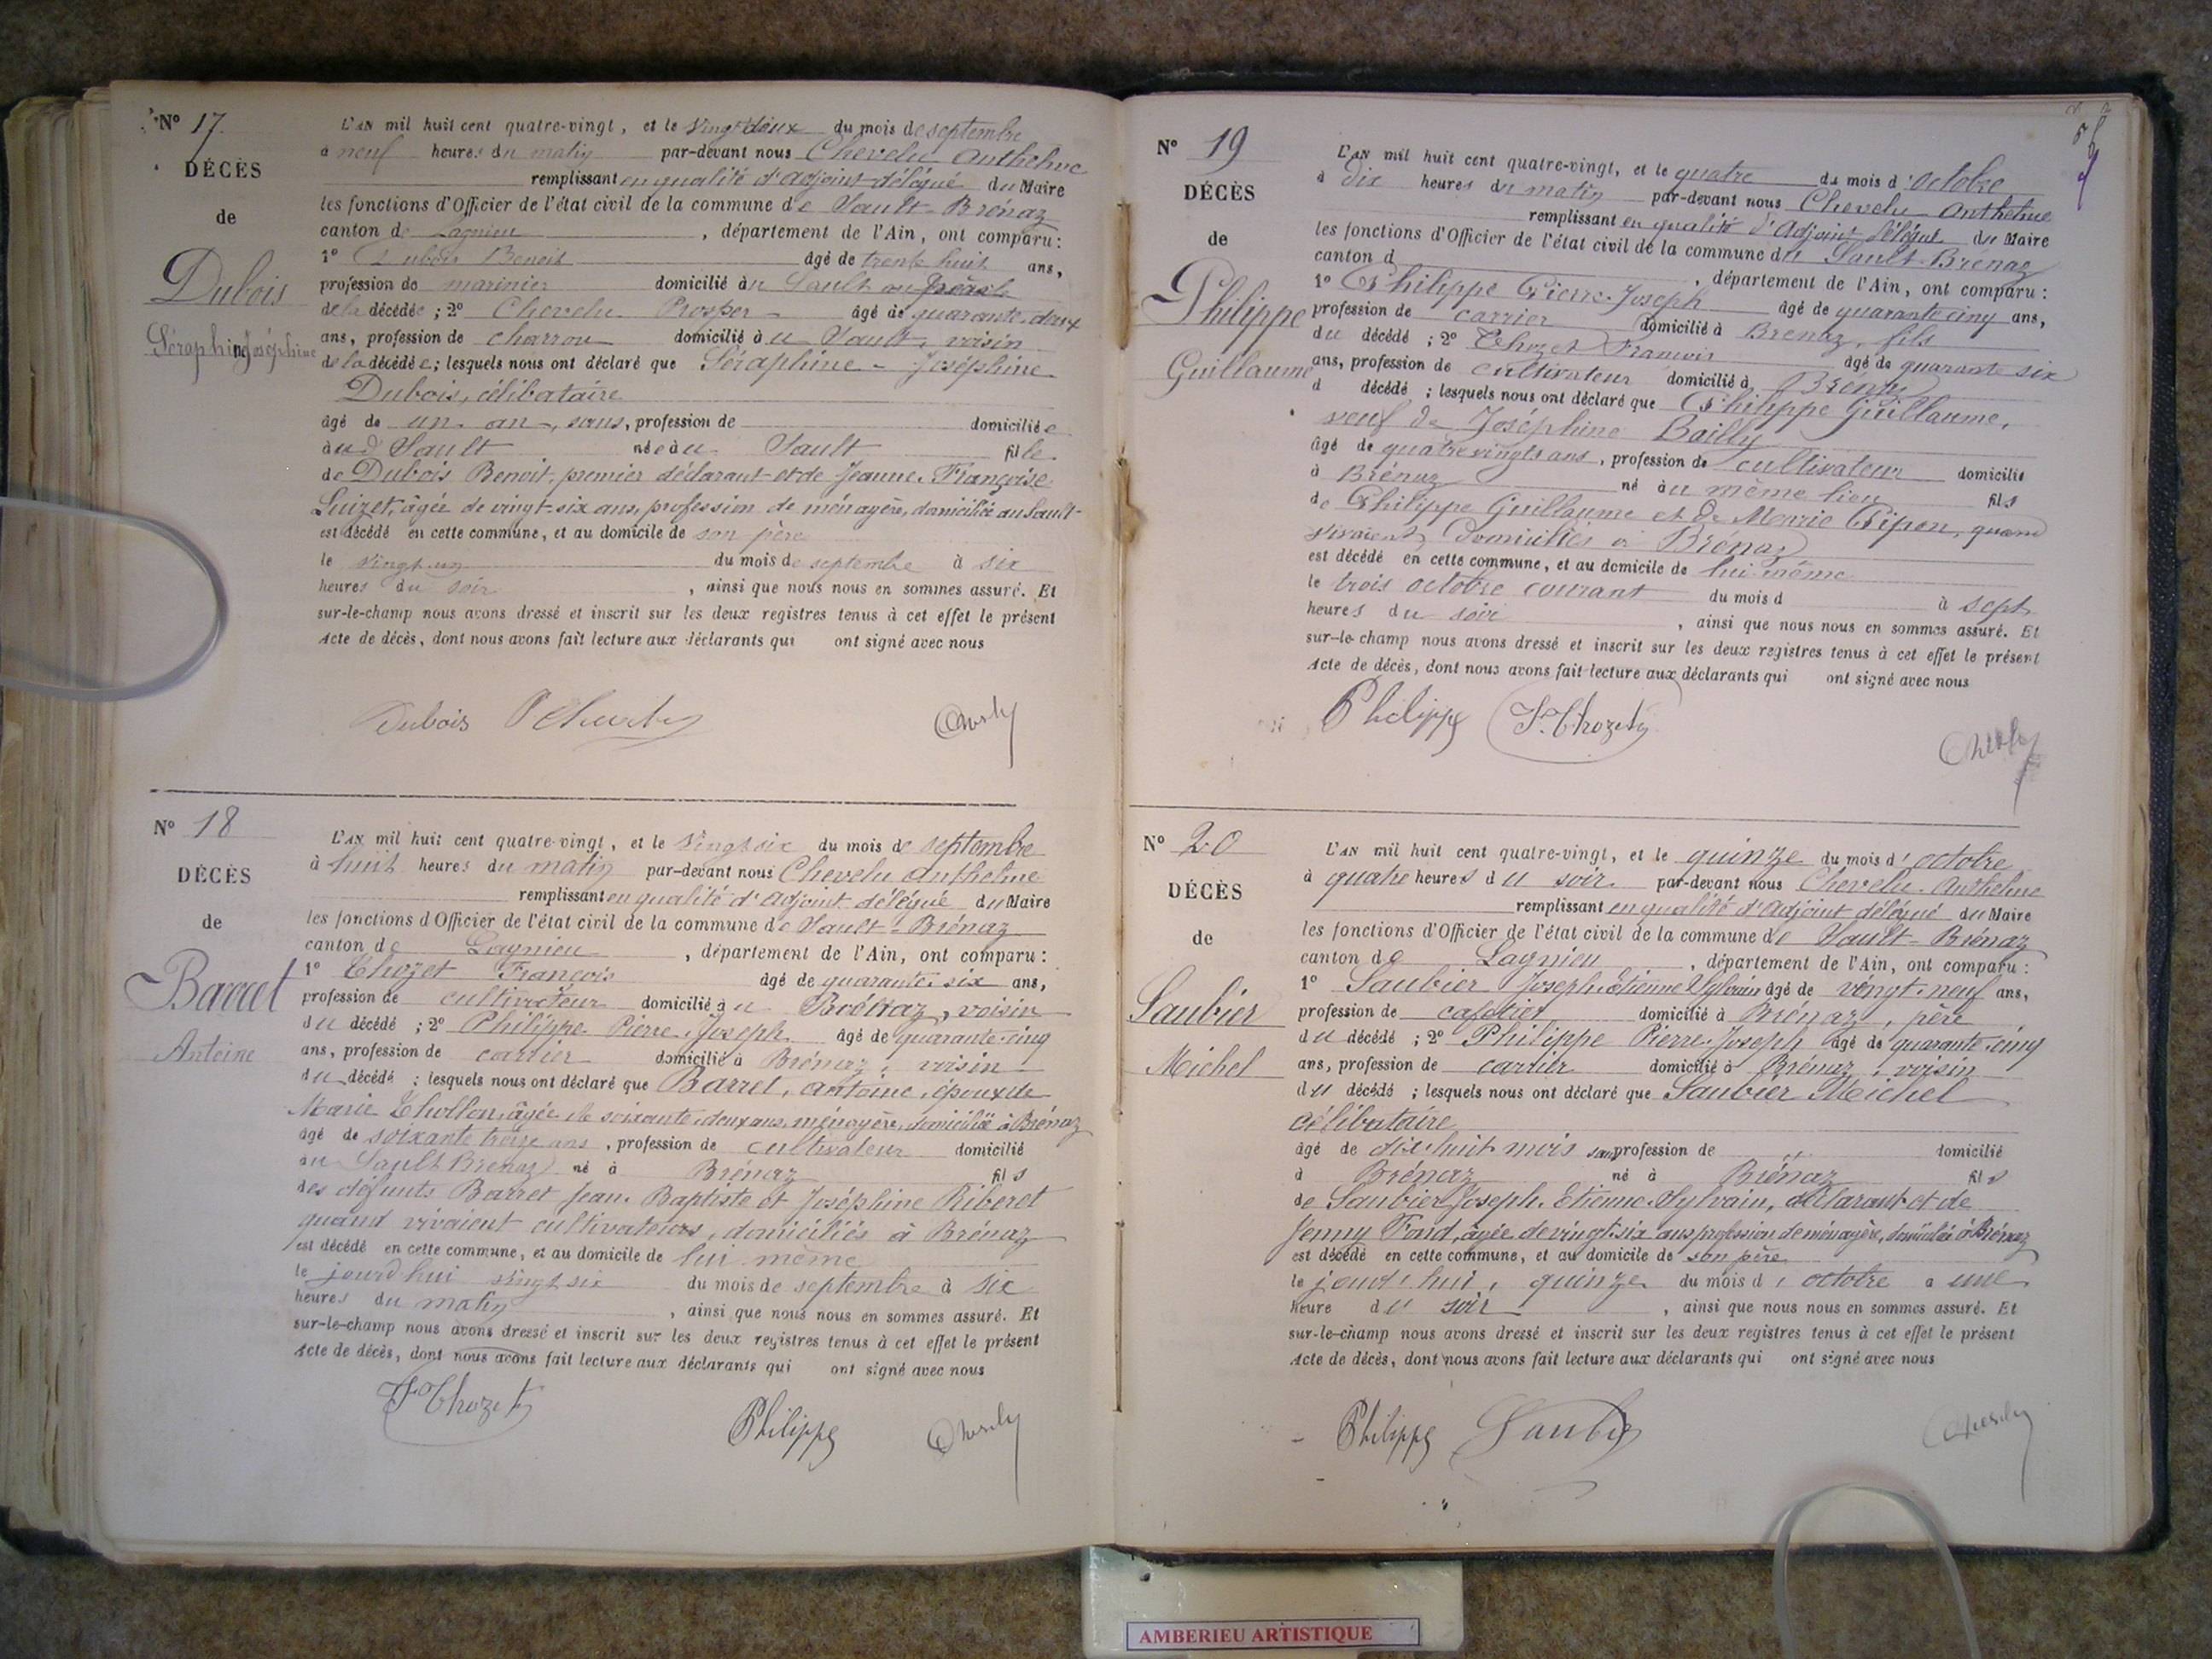 N° 17
DÉCÈS
de
Dubois
Séraphine Joséphine
L'AN mil huit cent quatre-vingt, et le vingt deux du mois de septembre
à neuf heures du matin par-devant nous Chevelu Anthelme
remplissant en qualité d'adjoint délégué du Maire
les fonctions d'Officier de l'état civil de la commune de Sault-Brénaz
canton de Lagnieu, département de l'Ain, ont comparu:
1° Dubois Benoit âgé de trente huit ans,
profession de marinier domicilié au Sault
de la décédée; 2° Chevelu Prosper âgé de quarante-deux
ans, profession de charron domicilié à u Sault, voisin
de la décédée; lesquels nous ont déclaré que Séraphine-Joséphine
Dubois, célibataire
âgé de un an, sans, profession de domiciliée
au d Sault née au Sault fille
de Dubois Benoit, premier déclarant et de Jeanne-Françoise
Luizet, âgée de vingt-six ans, profession de ménagère, domiciliée au Sault
est décédé en cette commune, et au domicile de son père
le vingt-un du mois de septembre à six
heures du soir, ainsi que nous nous en sommes assuré. Et
sur-le-champ nous avons dressé et inscrit sur les deux registres tenus à cet effet le présent
Acte de décès, dont nous avons fait lecture aux déclarants qui ont signé avec nous
Dubois
N° 18
DÉCÈS
de
Barret
Antoine
L'AN mil huit cent quatre-vingt, et le vingt six du mois de septembre
à huit heures du matin par-devant nous Chevelu Anthelme
remplissant en qualité d'adjoint délégué du Maire
les fonctions d'Officier de l'état civil de la commune de Sault-Brénaz
canton de Lagnieu, département de l'Ain, ont comparu:
1° Thozet François âgé de quarante-six ans,
profession de cultivateur domicilié à u Brénaz, voisin
du décédé; 2° Philippe Pierre-Joseph âgé de quarante-cinq
ans, profession de carrier domicilié à Brénaz, voisin
du décédé; lesquels nous ont déclaré que Barret, Antoine, époux de
Marie Thollon, âgée de soixante-deux ans, ménagère, domiciliée à Brénaz
âgé de soixante treize ans, profession de cultivateur domicilié
au Sault Brenaz né à Brénaz fils
des défunts Barret Jean-Baptiste et Joséphine Riberet
quand vivaient cultivateurs, domiciliés à Brénaz
est décédé en cette commune, et au domicile de lui même
le jourd'hui vingt six du mois de septembre à six
heures du matin, ainsi que nous nous en sommes assuré. Et
sur-le-champ nous avons dressé et inscrit sur les deux registres tenus à cet effet le présent
Acte de décès, dont nous avons fait lecture aux déclarants qui ont signé avec nous
F Thozet Philippe
N° 19
DÉCÈS
de
Philippe
Guillaume
L'AN mil huit cent quatre-vingt, et le quatre du mois d'octobre
à dix heures du matin par-devant nous Chevelu Anthelme
remplissant en qualité d'Adjoint délégué du Maire
les fonctions d'Officier de l'état civil de la commune du Sault-Brenaz
canton d, département de l'Ain, ont comparu:
1° Philippe Pierre-Joseph âgé de quarante cinq ans,
profession de carrier domicilié à Brenaz, fils
du décédé; 2° Thozet François âgé de quarante six
ans, profession de cultivateur domicilié à Brenaz
d décédé; lesquels nous ont déclaré que Philippe Guillaume,
veuf de Joséphine Bailly
âgé de quatre vingts ans, profession de cultivateur domicilié
à Brénaz né au même lieu fils
de Philippe Guillaume et de Marie Pipon, quand
vivaient domiciliés à Brénaz
est décédé en cette commune, et au domicile de lui-même
le trois octobre courant du mois d à sept
heures du soir, ainsi que nous nous en sommes assuré. Et
sur-le-champ nous avons dressé et inscrit sur les deux registres tenus à cet effet le présent
Acte de décès, dont nous avons fait lecture aux déclarants qui ont signé avec nous
Philippe F. Thozet
N° 20
DÉCÈS
de
Saubier
Michel
L'AN mil huit cent quatre-vingt, et le quinze du mois d'octobre
à quatre heures du soir par-devant nous Chevelu Anthelme
remplissant en qualité d'adjoint délégué du Maire
les fonctions d'Officier de l'état civil de la commune de Sault-Brénaz
canton de Lagnieu, département de l'Ain, ont comparu:
1° Saubier Joseph Etienne Sylvain âgé de vingt-neuf ans,
profession de cafetier domicilié à Brénaz, père
du décédé; 2° Philippe Pierre-Joseph âgé de quarante-cinq
ans, profession de carrier domicilié à Brénaz, voisin
du décédé; lesquels nous ont déclaré que Saubier Michel
célibataire
âgé de dix-huit mois sans profession de domicilié
à Brénaz né à Brénaz fils
de Saubier Joseph-Etienne-Sylvain, déclarant et de
Jenny Fond, âgée de vingt-six ans profession de ménagère, domiciliée à Brénaz
est décédé en cette commune, et au domicile de son père
le jourd'hui, quinze du mois d'octobre à une
heure du soir, ainsi que nous nous en sommes assuré. Et
sur-le-champ nous avons dressé et inscrit sur les deux registres tenus à cet effet le présent
Acte de décès, dont nous avons fait lecture aux déclarants qui ont signé avec nous
Philippe
AMBERIEU ARTISTIQUE